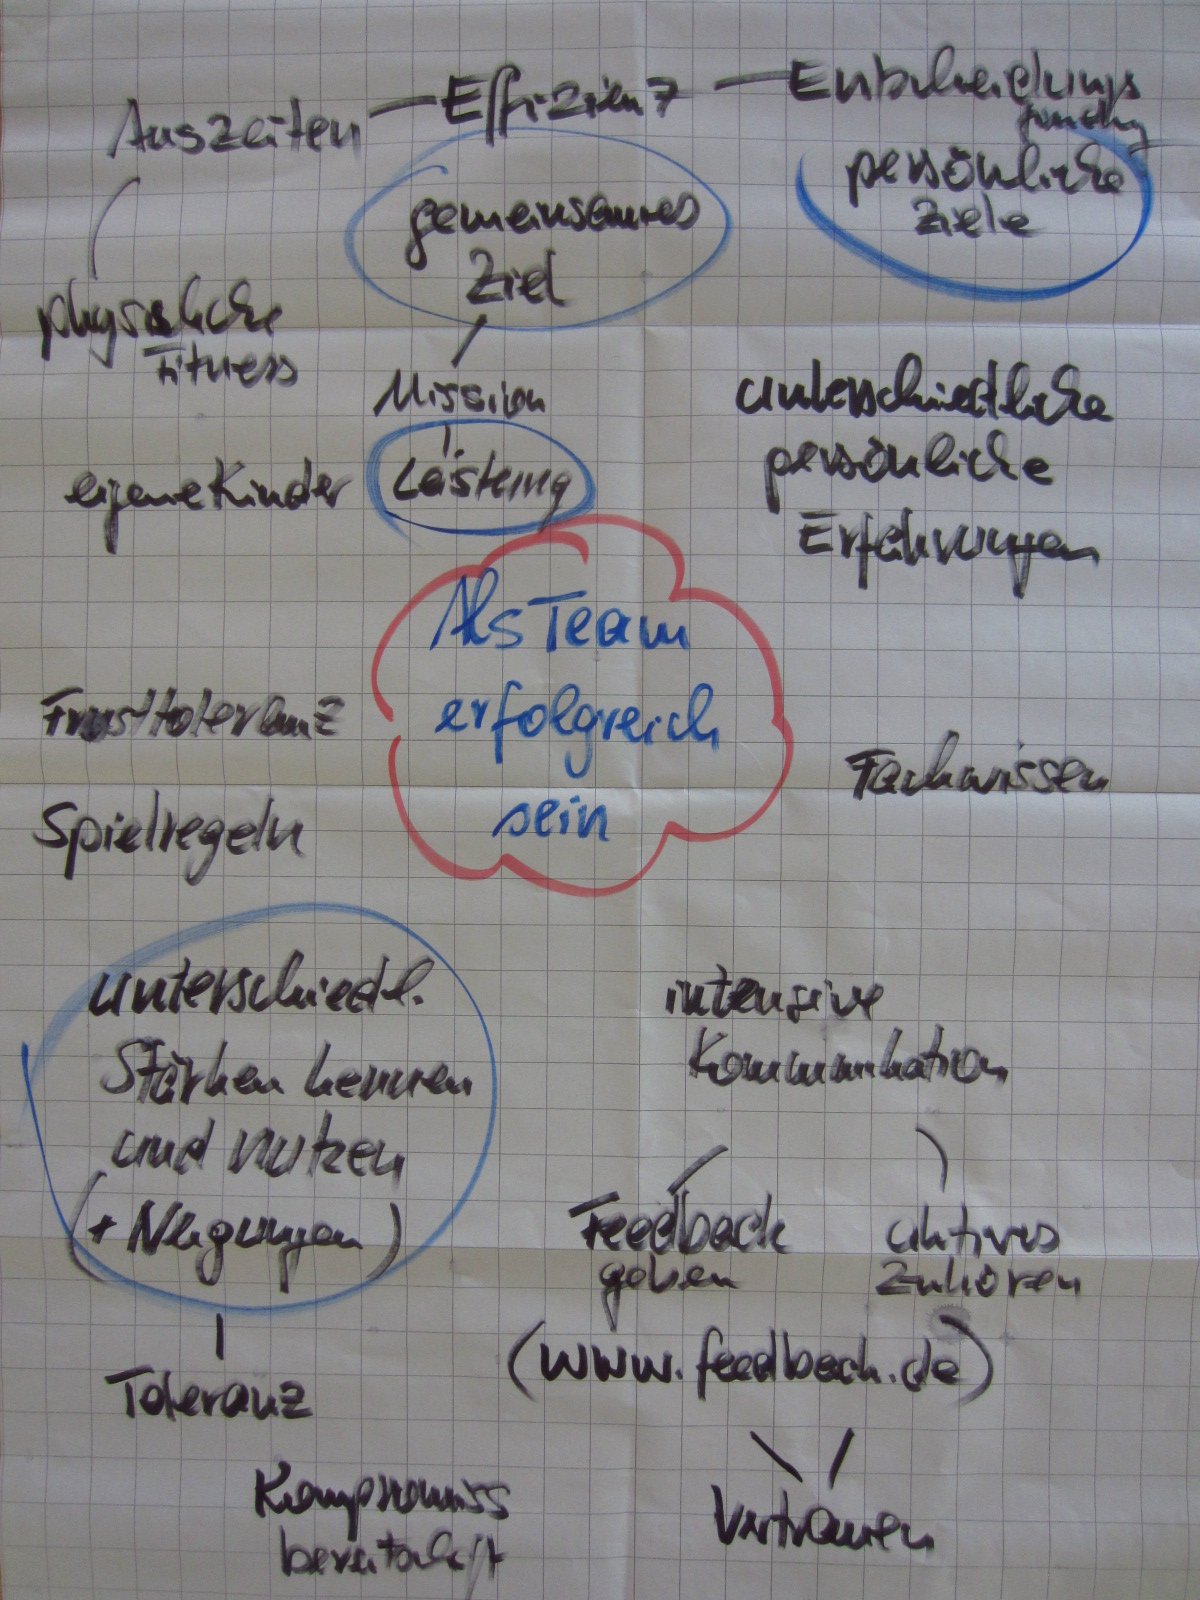 Auszeiten – Effizienz – Entscheidungs
findung
gemeinsames
Ziel
persönliche
Ziele
physische
Fitness
Mission
Leistung
eigene Kinder
unterschiedliche
persönliche
Erfahrungen
Als Team
erfolgreich
sein
Frusttoleranz
Spielregeln
Fachwissen
unterschiedl.
Stärken kennen
und nutzen
(+ Neigungen)
Toleranz
Kompromiss
bereitschaft
intensive
Kommunikation
Feedback
geben
aktives
Zuhören
(www.feedback.de)
Vertrauen